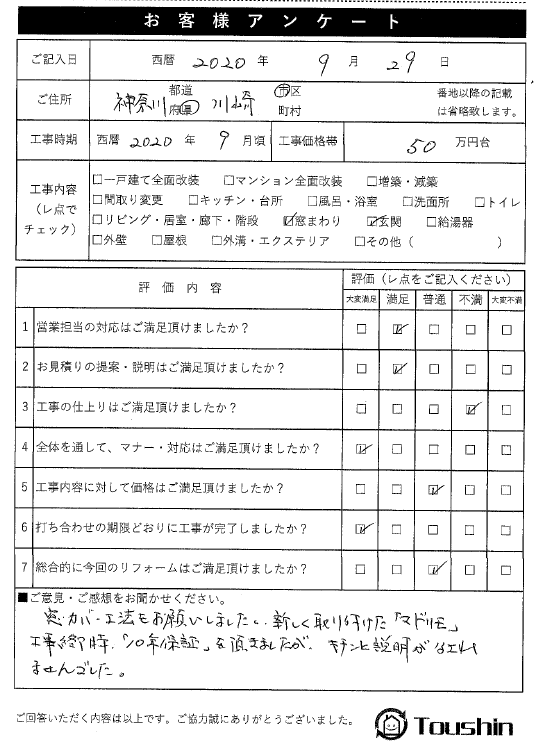 お客様アンケート
ご記入日 西暦 2020 年 9 月 29 日
ご住所 神奈川 都道府県 川崎 市区町村 番地以降の記載は省略致します。
工事時期 西暦 2020 年 9 月頃 工事価格帯 50 万円台
工事内容（レ点でチェック）
□一戸建て全面改装 □マンション全面改装 □増築・減築
□間取り変更 □キッチン・台所 □風呂・浴室 □洗面所 □トイレ
□リビング・居室・廊下・階段 ☑窓まわり ☑玄関 □給湯器
□外壁 □屋根 □外溝・エクステリア □その他（ ）
評価内容 評価（レ点をご記入ください）
大変満足 満足 普通 不満 大変不満
1 営業担当の対応はご満足頂けましたか？ □ ☑ □ □ □
2 お見積りの提案・説明はご満足頂けましたか？ □ ☑ □ □ □
3 工事の仕上りはご満足頂けましたか？ □ □ □ ☑ □
4 全体を通して、マナー・対応はご満足頂けましたか？ ☑ □ □ □ □
5 工事内容に対して価格はご満足頂けましたか？ □ □ ☑ □ □
6 打ち合わせの期限どおりに工事が完了しましたか？ ☑ □ □ □ □
7 総合的に今回のリフォームはご満足頂けましたか？ □ □ ☑ □ □
■ご意見・ご感想をお聞かせください。
窓カバー工法をお願いしました。新しく取り付けた「マドリモ」
工事終了時、「10年保証」を頂きましたが、キチンと説明がなされ
ませんでした。
ご回答いただく内容は以上です。ご協力誠にありがとうございました。
Toushin